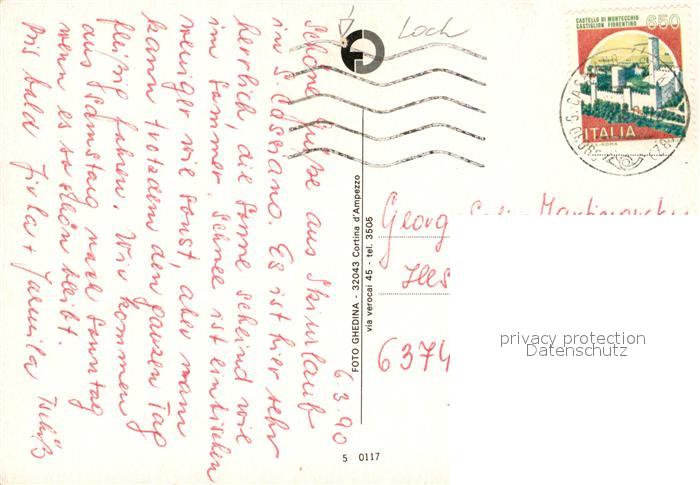 Schöne Grüße aus Skiurlaub
in S. Cassiano. Es ist hier sehr
herrlich, die Sonne scheind wie
im Sommer. Schnee ist ein bischen
weniger wie sonst, aber man
kann trotzdem den ganzen Tag
fleißig fahren. Wir kommen
aus Samstag nach Sonntag
wenn es so schön bleibt.
Bis bald Jirka + Jarmila Tschüß
6.3.90
Loch
FOTO GHEDINA - 32043 Cortina d'Ampezzo
via verocai 45 - tel. 3505
5 0117
CASTELLO DI MONTECCHIO
CASTIGLION FIORENTINO
650
ITALIA
Georg
6374
privacy protection
Datenschutz